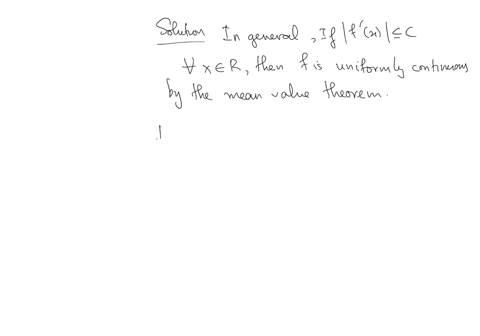 Solution In general, If |f'(x)| ≤ C
∀ x ∈ R, then f is uniformly continuous
by the mean value theorem.